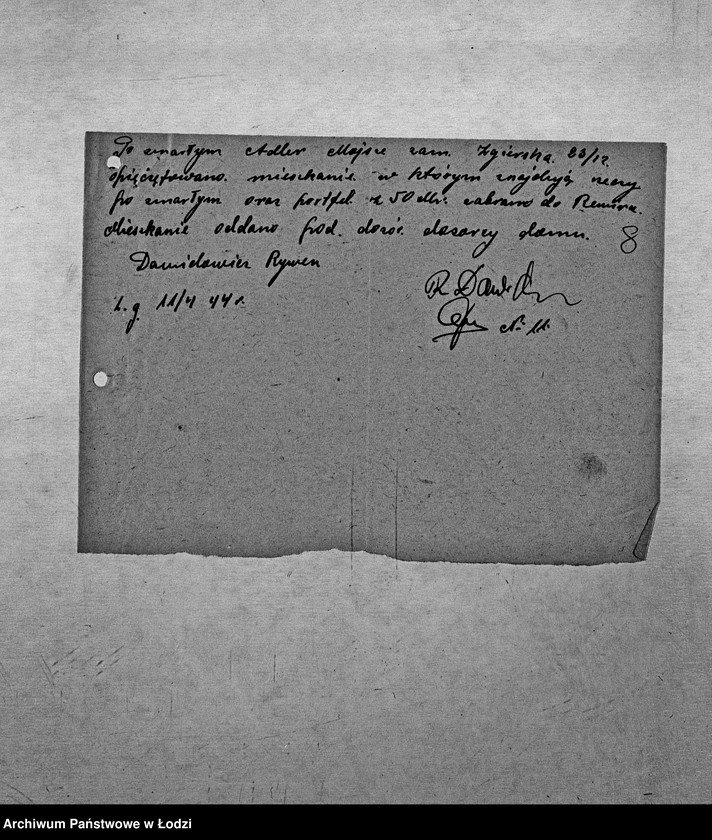 Po zmarłym Adler Mojsze zam. Zgierska 23/12.
opieczętowano mieszkanie w którym znajdują rzeczy
po zmarłym oraz portfel z 50 mk. zabrano do Rewiru.
Mieszkanie oddano pod. dozór. dozorcy domu.
8
Dawidowicz Rywen
R Dawid
L. g. 11/4 44 r.
No 11
Archiwum Państwowe w Łodzi